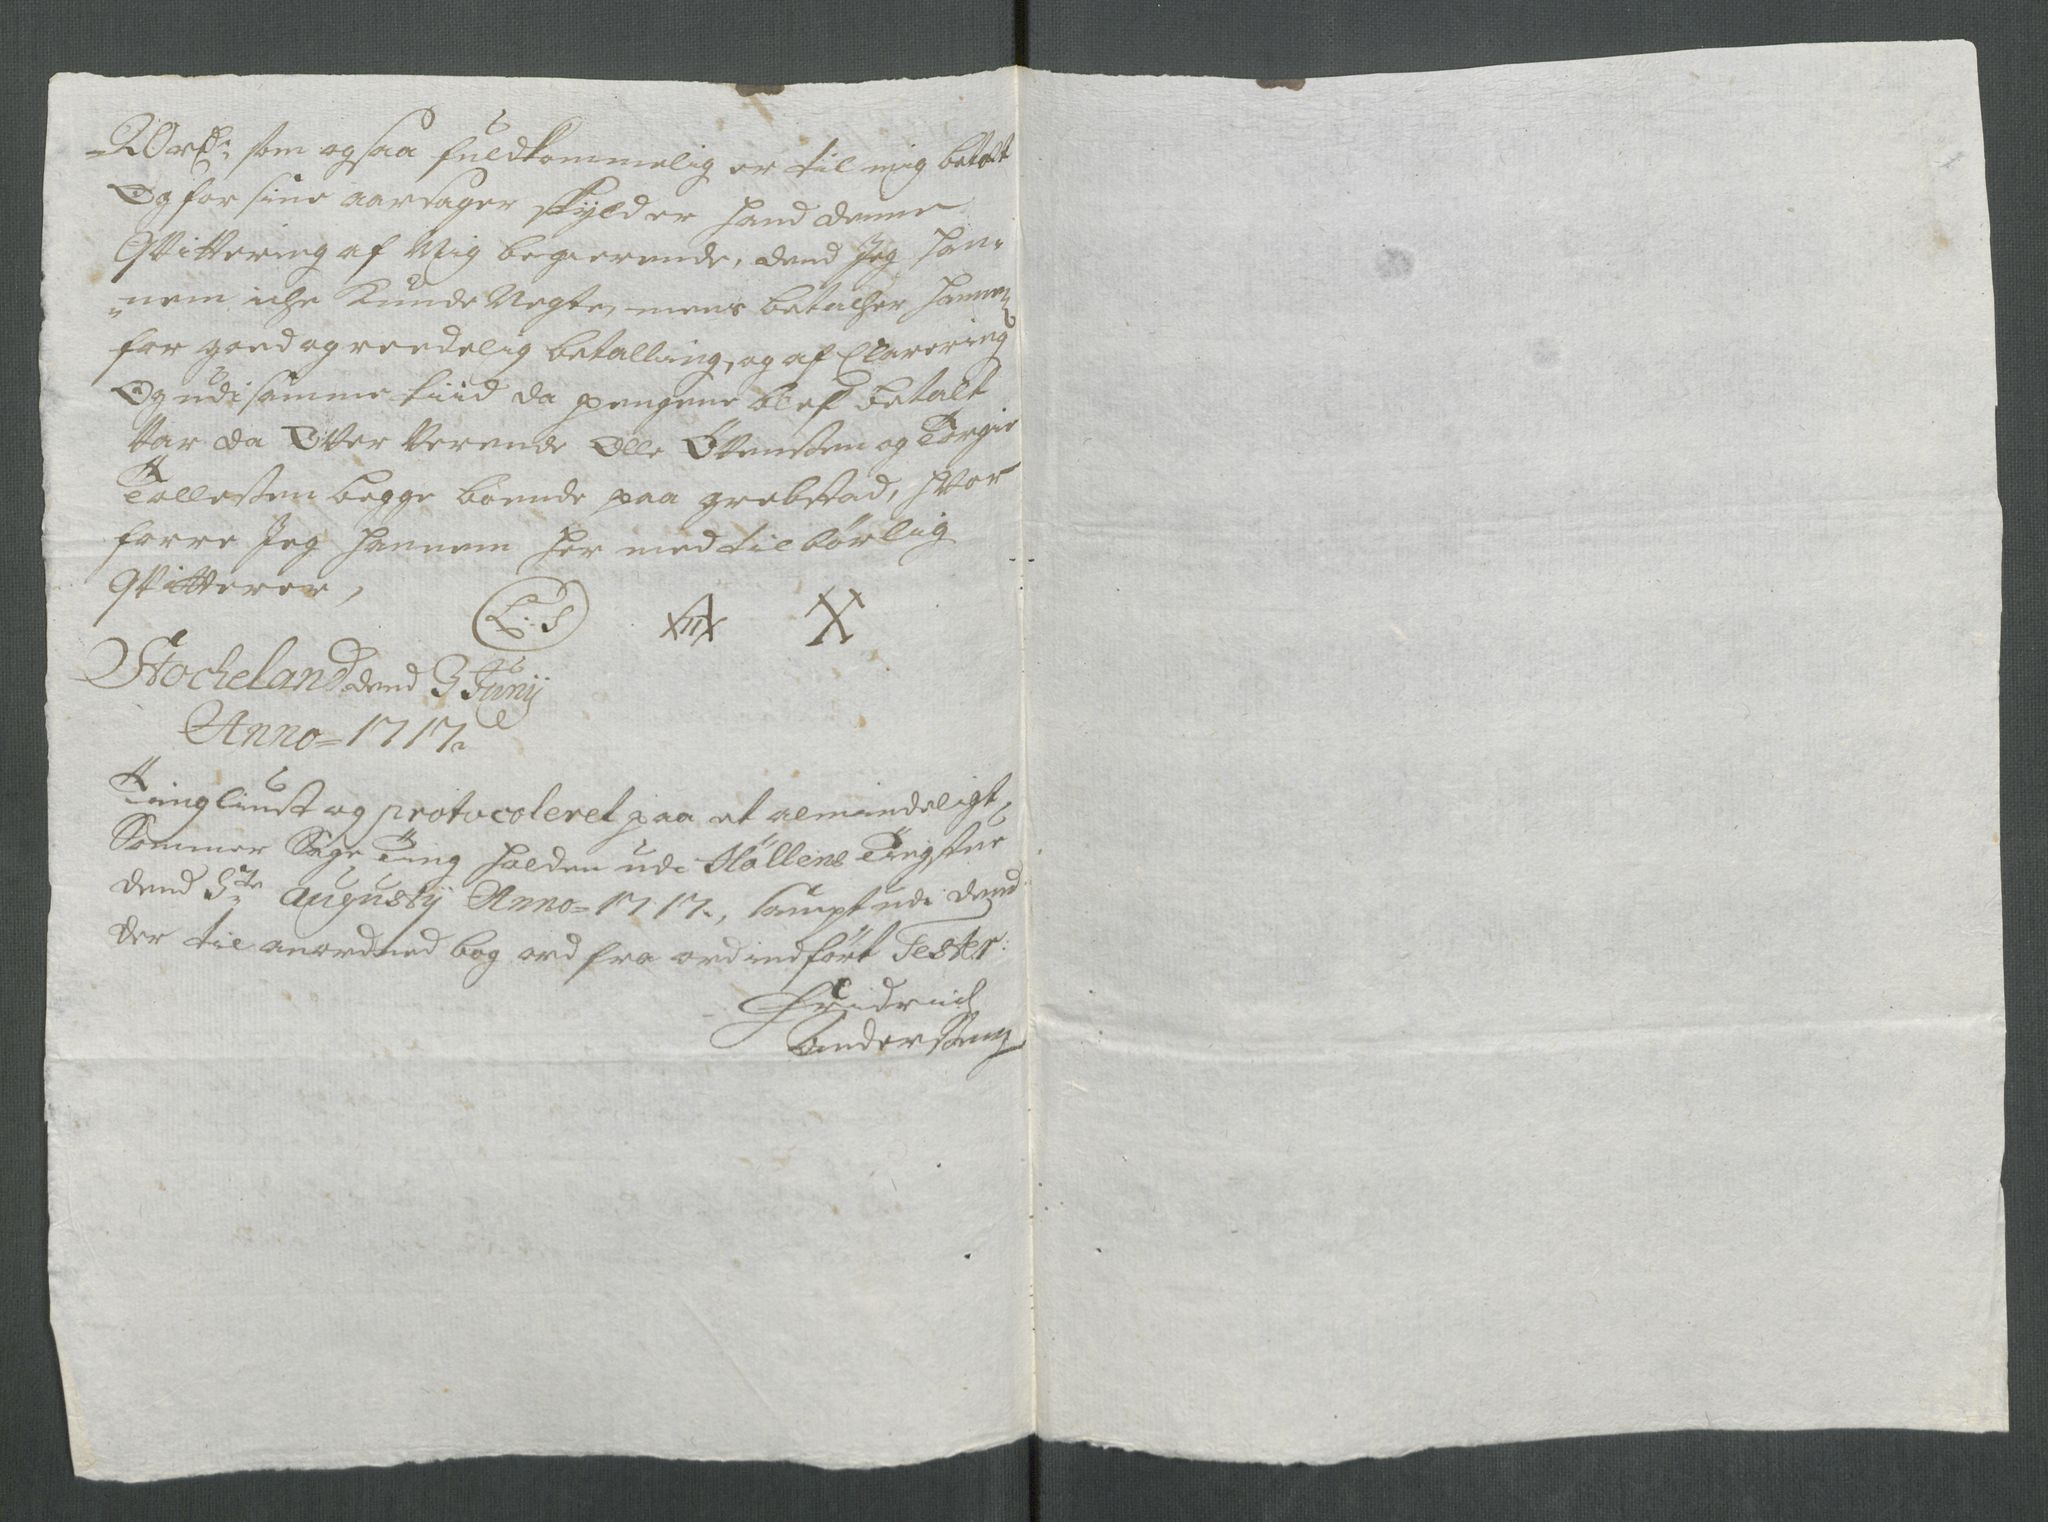 som ogsaa fuldkommelig er til mig betalt
Og for sine aarsager skyld er hand denne
Qvittering af Mig begierende, dend Jeg han-
nem iche Kunde Negte, mens betacher hannem
for goed og reedelig betalling, og af Clarering
Og udi samme tiid da pengene blef betalt
Var da Over Verende Olle Evensøn og Torgie
Tollefsen begge boende paa grebstad, hvor
forre Jeg hannem her med tilbørlig
Qvitterer,
L: S
Stocheland dend 3 Junij
Anno = 1717.
Tingliust og protocoleret paa et almindeligt
Sommer Sage Ting holden udi Høllens Tingstue
dend 3te Augustij Anno = 1717., sampt udi dend
der til anordned bog ord fra ord indført Tester:
Fridrich
Anderssen